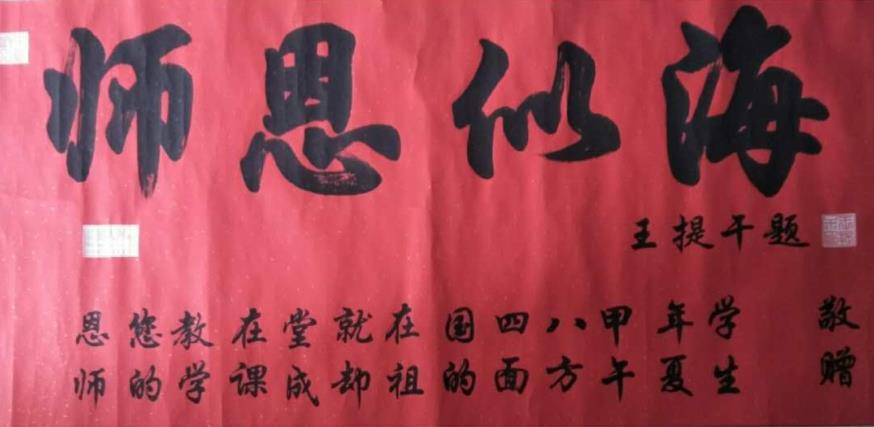 师恩似海
王提干题
恩师
您的
教学
在课
堂成
就却
在祖
国的
四面
八方
甲午
年夏
学生
敬赠